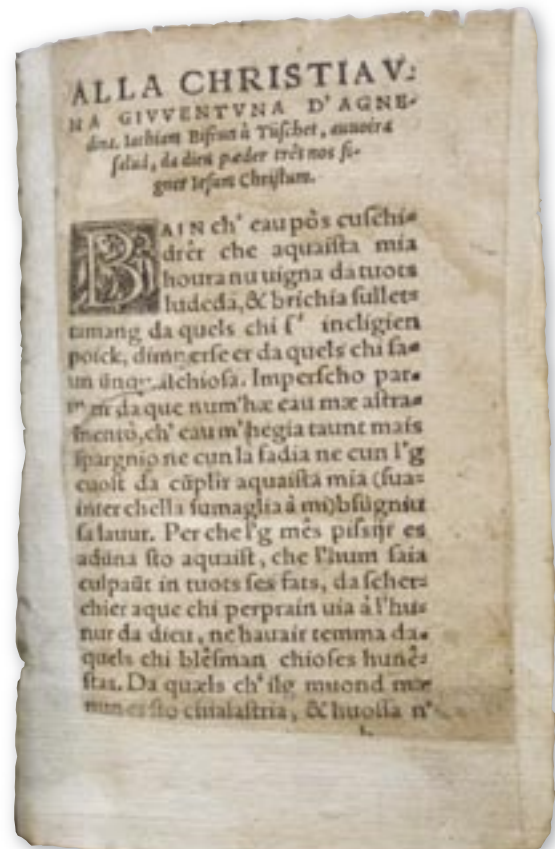 ALLA CHRISTIAV⸗
NA GIVVENTVNA D'AGNE⸗
dina. Iachiam Bifrun à Tüschet, auuoira
salüd, da dieu pæder trés nos si⸗
gner Iesum Christum.
BAIN ch' eau pôs cuschi⸗
drêr che aquaista mia
houra nu uigna da tuots
ludeda, & brichia sullet⸗
tamang da quels chi s' incligien
poick, dimperse er da quels chi sa⸗
un Impercho par⸗
da que num'hæ eau mæ astra⸗
mentô, ch' eau m'hegia taunt mais
spargnio ne cun la fadia ne cun l'g
cuost da cūplir aquaista mia (sua⸗
inter chella sumaglia à mi) bsügniu
sa lauur. Per che l'g mês pissijr es
adüna sto aquaist, che l'hum saia
culpaūt in tuots ses fats, da scher⸗
chier aque chi perprain uia à l'hu⸗
nur da dieu, ne hauair temma da⸗
quels chi blêsman chioses hunê⸗
stas. Da quæls ch' ilg muond mæ
nun es sto & huossa n'